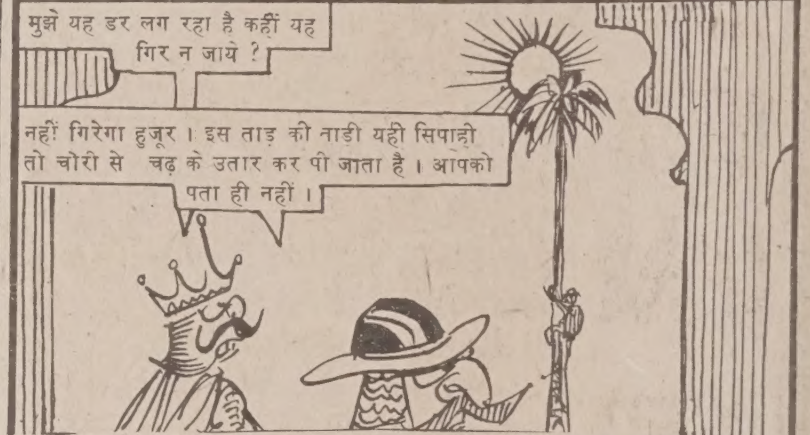 मुझे यह डर लग रहा है कहीं यह
गिर न जाये ?
नहीं गिरेगा हुजूर । इस ताड़ की नाड़ी यही सिपाही
तो चोरी से चढ़ के उतार कर पी जाता है । आपको
पता ही नहीं ।